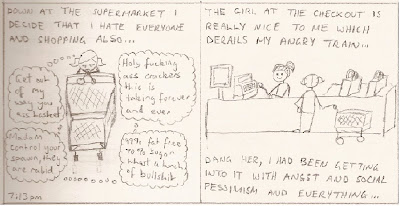 DOWN AT THE SUPERMARKET I
DECIDE THAT I HATE EVERYONE
AND SHOPPING ALSO...
Get out
of my
way you
ass basket
Holy fucking
ass crackers
this is
taking forever
and ever
Madam
control your
spawn, they
are rabid
99% fat free
70% sugar
what a bunch
of bullshit
7:13pm
THE GIRL AT THE CHECKOUT IS
REALLY NICE TO ME WHICH
DERAILS MY ANGRY TRAIN...
DANG HER, I HAD BEEN GETTING
INTO IT WITH ANGST AND SOCIAL
PESSIMISM AND EVERYTHING...